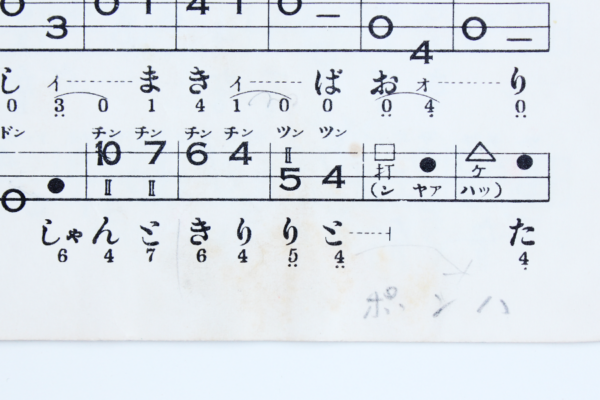 0 1 4 1 0 —
3 0 4 0 —
し イ ま き イ ば お オ り
0 3 0 1 4 1 0 0 0 4 0
ドン チン チン チン チン ツン ツン
10 7 6 4 II □ ● △ ●
0 ● II II 5 4 打 ケ
(ン ヤァ ハッ)
しゃんときりりと た
6 4 7 6 4 5 4 4
ポンハ